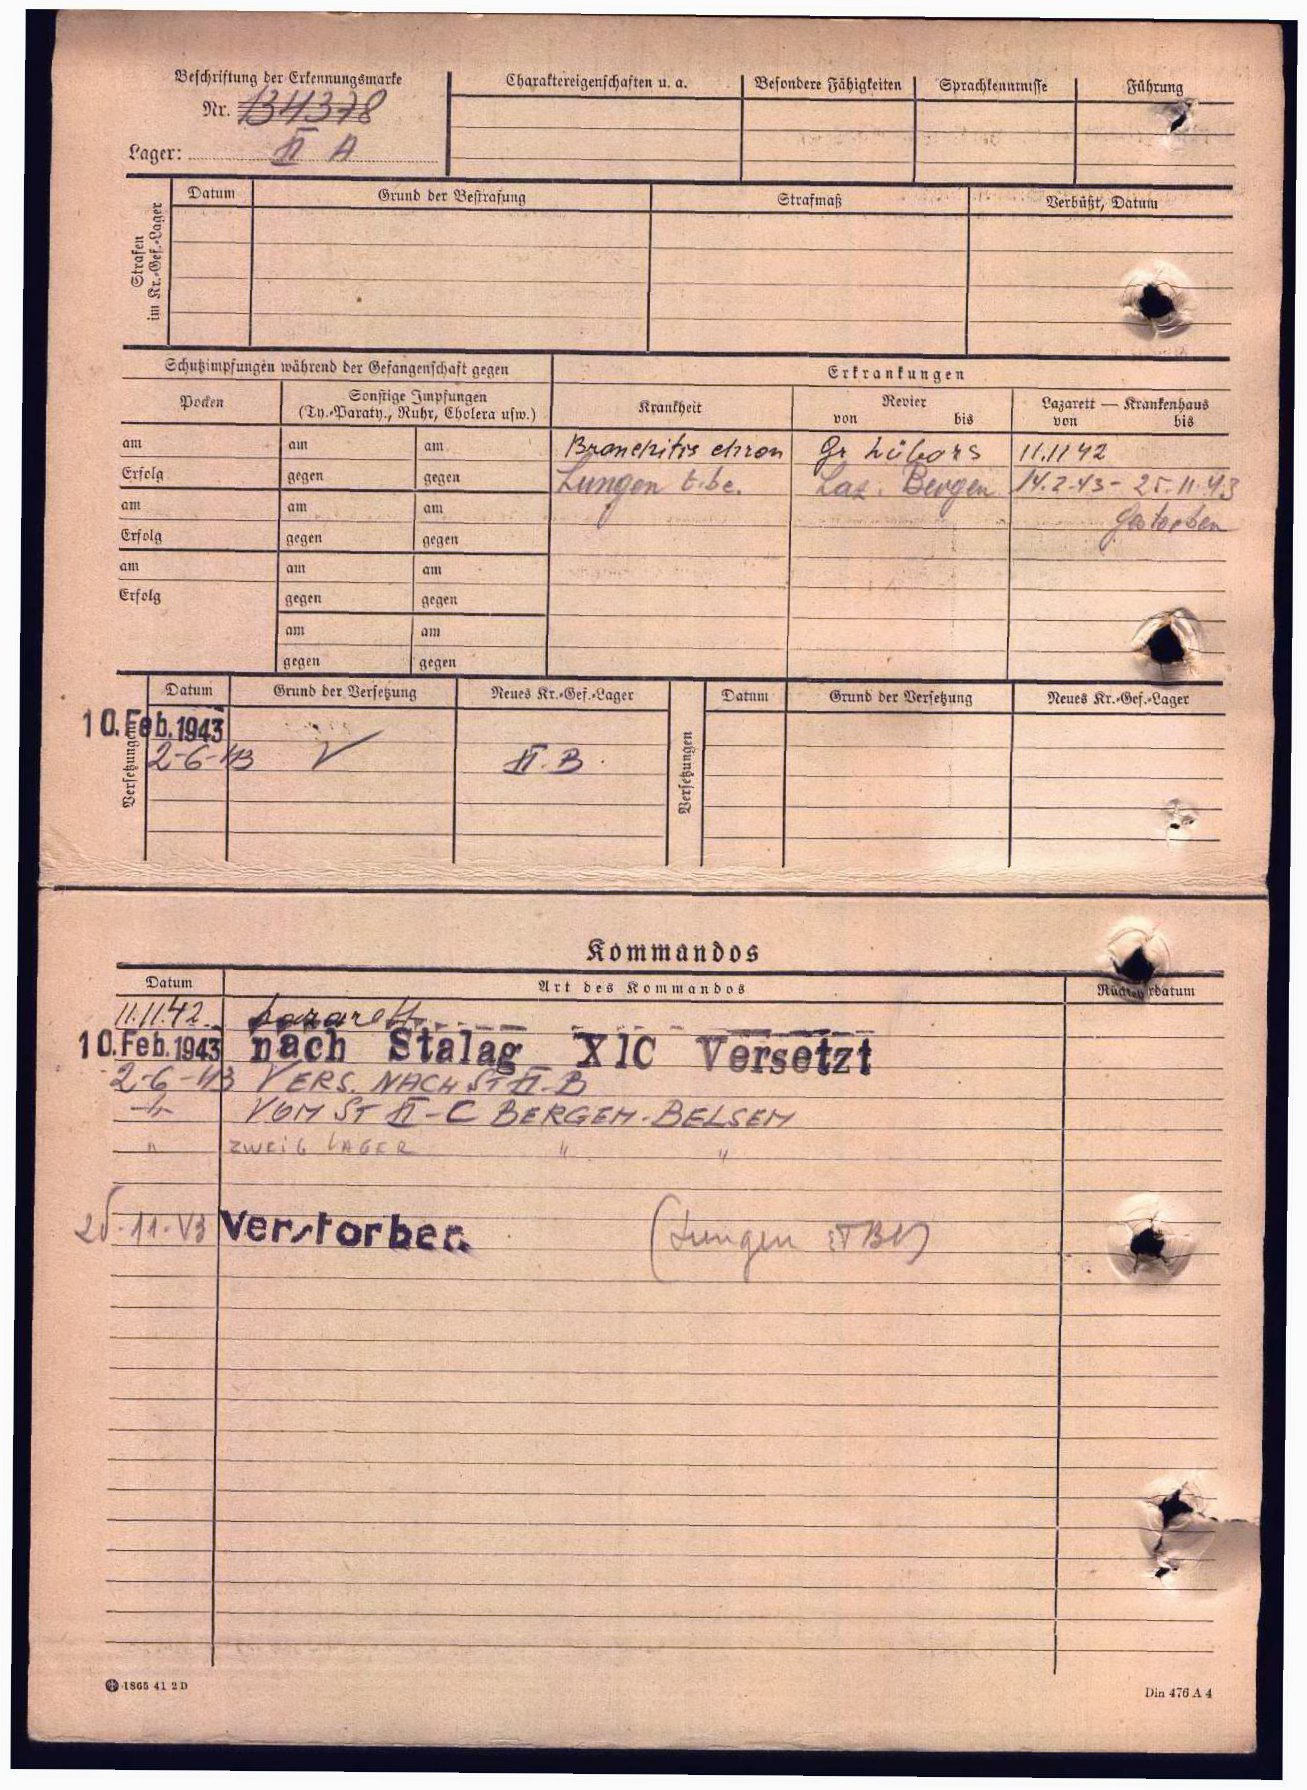 Beschriftung der Erkennungsmarke
Nr. 134378
Lager: II A
Charaktereigenschaften u. a.
Besondere Fähigkeiten
Sprachkenntnisse
Führung
Strafen im Kr.-Gef.-Lager
Datum
Grund der Bestrafung
Strafmaß
Verbüßt, Datum
Schutzimpfungen während der Gefangenschaft gegen
Erkrankungen
Pocken
Sonstige Impfungen
(Ty.-Paraty., Ruhr, Cholera usw.)
Krankheit
Revier
von bis
Lazarett — Krankenhaus
von bis
am am am Bronchitis chron Gr Lübars 11.11 42
Erfolg gegen gegen Lungen t.be. Laz. Bergen 14.2.43 - 25.11.43
am am am gestorben
Erfolg gegen gegen
am am am
Erfolg gegen gegen
am am
gegen gegen
Versetzungen
Datum
Grund der Versetzung
Neues Kr.-Gef.-Lager
Versetzungen
Datum
Grund der Versetzung
Neues Kr.-Gef.-Lager
10. Feb. 1943
2-6-43 XI.B
Kommandos
Datum
Art des Kommandos
11.11.42 Lazarett
10. Feb. 1943 nach Stalag XIC Versetzt
2-6-43 VERS. NACH ST XI-B
VOM ST XI-C BERGEN-BELSEN
" ZWEIGLAGER " "
25-11-43 Verstorben (Lungen TBC)
1865 41 2 D
Din 476 A 4